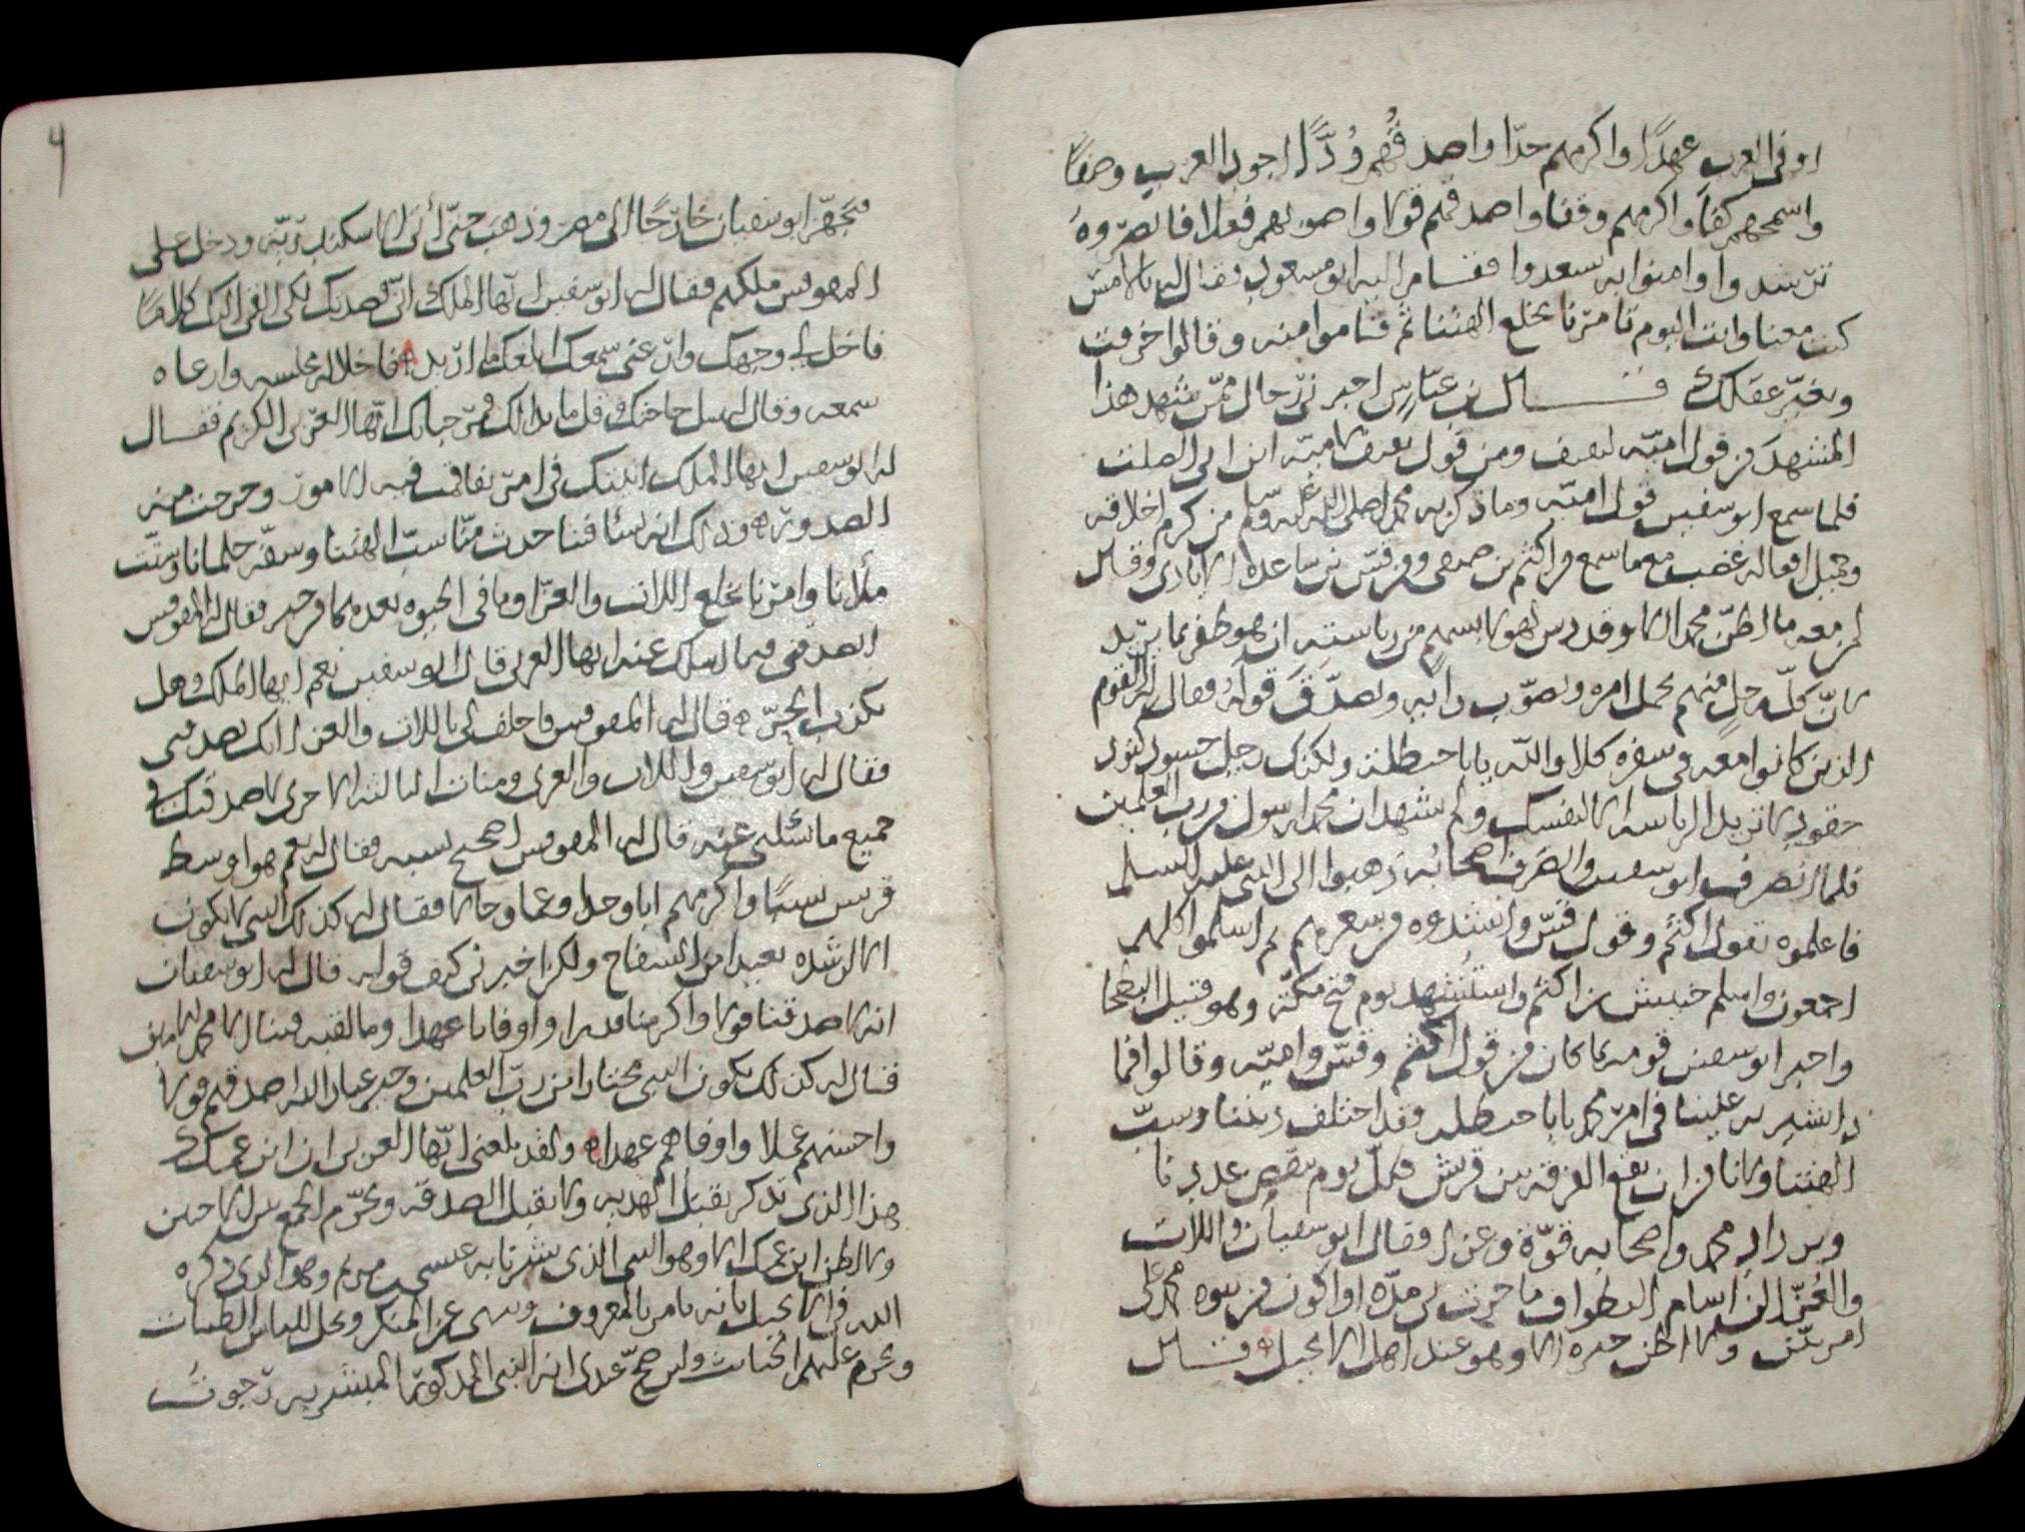 اوفى العرب عهدًا واكرمهم جدّا واصدقهم وُدًّا اجود العرب وصفًا
واسمحهم كفا واكرمهم وقفا واصدقهم قولا واصوبهم فعلا فانصروهُ
ترشدوا وامنوا به تسعدوا فقام اليه ابو مسعود فقال له بالامس
كنت معنا وانت اليوم تامرنا بخلع الهتنا ثم قاموا منه وقالوا خرفت
وتغيّر عقلك قال بن عبّاس اخبرني رجال ممّن شهد هذا
المشهد من قول اميّه ثقيف ومن قول ثقيف لاميّه ابن ابي الصلت
فلما سمع ابو سفين قول اميّه وما ذكر به محمدا صلى الله عليه وسلم من كرم اخلاقه
وجميل افعاله غضب مع ما سمع من اكثم بن صيفي ومن قسّ بن ساعدة الايادي وقال
لمن معه ما اظنّ محمدا الا وقد
لانّ كلّ رجل منهم يحمل امره ويصوّب رأيه ويصدّق قوله فقال له القوم
الذين كانوا معه في سفره كلا والله يا ابا حنظلة ولكنك رجل حسود كنود
حقود لا تريد الرياسه الا لنفسك ولم تشهد ان محمدا رسول من رب العلمين
فلما انصرف ابو سفين وانصرف اصحابه ذهبوا الى النبي عليه السلم
فاعلموه بقول اكثم وقول قسّ وانشدوه من شعرهم ثم اسلموا كلهم
اجمعون واسلم حبيش بن اكثم واستشهد يوم فتح مكّة وهو قتيل البطحا
واخبر ابو سفين قومه بما كان من قول اكثم وقسّ واميّه وقالوا فما
ذا تشير به علينا في امر محمد يا ابا حنظله وقد اختلف ديننا وسبّ
الهتنا ولا نامن ان تقع الفرقه بين قريش فكلّ يوم ينقص عددنا
ويزداد محمد واصحابه قوّة وعزا فقال ابو سفيان واللات
والعُزّا لئن
امر بيّن ولا اظن خبره الا وهو عند اهل الانجيل قال
فتجهّز ابو سفيان خارجًا الى مصر وذهب حتى أتى الاسكندريّه ودخل على
المقوقس ملكهم فقال له ابو سفين ايّها الملك انّي قصدتك لكي القي اليك كلامًا
فاخل لي وجهك وارعني سمعك ابلغك ما اريد فاخلا له مجلسه وارعاه
سمعه وقال له سل حاجتك وقل ما بدا لك ايّها العزيز الكريم فقال
له ابو سفين ايها الملك اتيتك في امر تفاقمت فيه الامور وحرجت منه
الصدور وذلك انه نشا فينا حدث منّا سبّ الهتنا وسفّه حلمانا وشتّت
ملأنا وامرنا بخلع اللات والعزّا وما في الحيوه بعدهما من خير فقال له المقوقس
اتصدقني فيما اسلك عنه ايها العربي قال ابو سفين نعم ايها الملك وهل
يكذب الحرّ قال له المقوقس فاحلف لي باللات والعزا انك تصدقني
فقال له ابو سفين واللات والعزى ومنات الثالثه الاخرى لاصدقنك في
جميع ما تسئلني عنه قال له المقوقس اصحيح نسبه فقال له نعم هو اوسط
قريش نسبًا واكرمهم ابا وجدا وعما وخالا فقال له كذلك النبي لا يكون
الا لرشده بعيدا من السفاح ولكن اخبرني كيف قوله قال له ابو سفيان
انه لاصدقنا قولا واكرمنا قدرا واوفانا عهدا وما لقبه فينا الا محمد الامين
فقال له كذلك يكون النبي مختارا من ربّ العلمين وخير عباد الله اصدقهم قولا
واحسنهم عملا واوفاهم عهدا ولقد بلغني ايّها العزيز ان ابن عمك
هذا الذي تذكر يقبل الهديه ولا يقبل الصدقه
ولا اظن ابن عمك الا وهو النبي الذي بشرنا به عيسى بن مريم وهو الذي ذكره
الله في الانجيل بانه يامر بالمعروف وينهى عن المنكر ويحل للناس الطيبات
ويحرم عليهم الخبائث ولن صحّ عندي انه النبي المذكور المبشر به رجوت